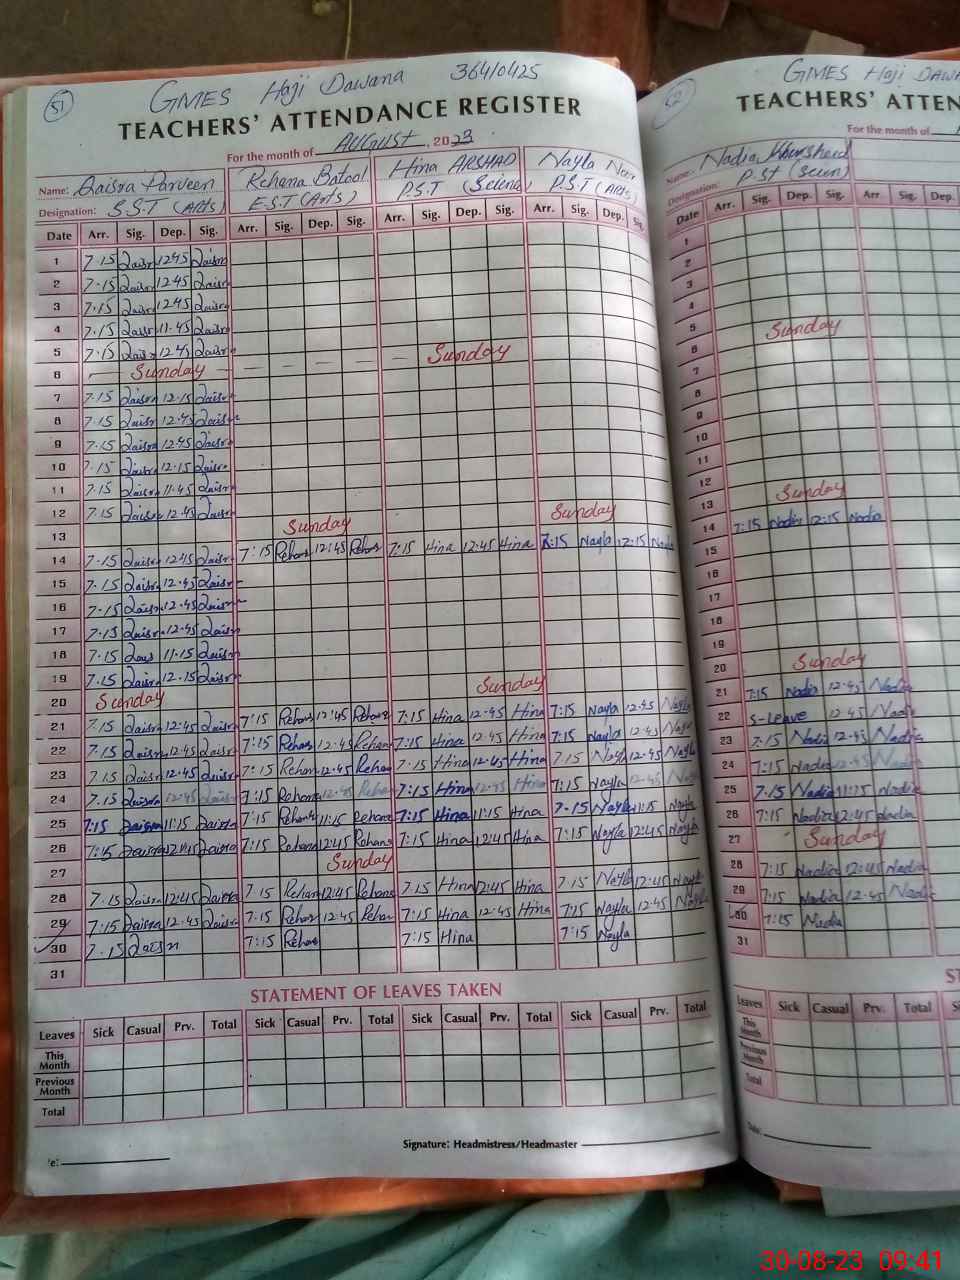 51
GMES Haji Dawana 36410425
TEACHERS' ATTENDANCE REGISTER
For the month of AUGUST, 2023
Name: Qaisra Parveen Rehana Batool Hina ARSHAD Nayla Noor
Designation: S.S.T (Arts) E.S.T (Arts) P.S.T (Science) P.S.T (Arts)
Date Arr. Sig. Dep. Sig. Arr. Sig. Dep. Sig. Arr. Sig. Dep. Sig. Arr. Sig. Dep. Sig.
1 7.15 Qaisra 12.45 Qaisra
2 7.15 Qaisra 12.45 Qaisra
3 7.15 Qaisra 12.45 Qaisra
4 7.15 Qaisra 11.45 Qaisra
5 7.15 Qaisra 12.45 Qaisra
6 Sunday Sunday
7 7.15 Qaisra 12.15 Qaisra
8 7.15 Qaisra 12.45 Qaisra
9 7.15 Qaisra 12.45 Qaisra
10 7.15 Qaisra 12.15 Qaisra
11 7.15 Qaisra 11.45 Qaisra
12 7.15 Qaisra 12.45 Qaisra
13 Sunday Sunday
14 7.15 Qaisra 12.45 Qaisra 7:15 Rehana 12:45 Rehana 7:15 Hina 12:45 Hina 7:15 Nayla 12:15 Nayla
15 7.15 Qaisra 12.45 Qaisra
16 7.15 Qaisra 12.45 Qaisra
17 7.15 Qaisra 12.45 Qaisra
18 7.15 Qais 11.15 Qaisra
19 7.15 Qaisra 12.15 Qaisra
20 Sunday Sunday
21 7.15 Qaisra 12.45 Qaisra 7:15 Rehana 12:45 Rehana 7:15 Hina 12:45 Hina 7:15 Nayla 12:45 Nayla
22 7.15 Qaisra 12.45 Qaisra 7:15 Rehana 12:45 Rehana 7:15 Hina 12:45 Hina 7:15 Nayla 12:45 Nayla
23 7.15 Qaisra 12.45 Qaisra 7:15 Rehan 12.45 Rehan 7.15 Hina 12:45 Hina 7.15 Nayla 12.45 Nayla
24 7.15 Qaisra 12.45 Qaisra 7:15 Rehana 12:45 Rehana 7:15 Hina 12:45 Hina 7:15 Nayla 12:45 Nayla
25 7:15 Qaisra 11:15 Qaisra 7:15 Rehana 11:15 Rehana 7:15 Hina 11:15 Hina 7.15 Nayla 11:15 Nayla
26 7:15 Qaisra Qaisra 7:15 Rehana 12:45 Rehana 7:15 Hina 12:45 Hina 7:15 Nayla 12:45 Nayla
27 Sunday
28 7.15 Qaisra 12:45 Qaisra 7.15 Rehana 12:45 Rehana 7.15 Hina 12:45 Hina 7.15 Nayla 12:45 Nayla
29 7:15 Qaisra 12.45 Qaisra 7.15 Rehan 12.45 Rehan 7:15 Hina 12.45 Hina 7:15 Nayla 12.45 Nayla
30 7.15 Qaisra 7:15 Rehan 7:15 Hina 7:15 Nayla
31
STATEMENT OF LEAVES TAKEN
Leaves Sick Casual Prv. Total Sick Casual Prv. Total Sick Casual Prv. Total Sick Casual Prv. Total
This Month
Previous Month
Total
Signature: Headmistress/Headmaster
e:
52
GMES Haji DAWA
TEACHERS' ATTEN
For the month of
Name: Nadia Khursheid
Designation: P.ST (Scien)
Date Arr. Sig. Dep. Sig. Arr. Sig. Dep.
1
2
3
4
5 Sunday
6
7
8
9
10
11
12
13 Sunday
14 7:15 Nadia 12:15 Nadia
15
16
17
18
19
20 Sunday
21 7:15 Nadia 12.45 Nadia
22 S-Leave 12.45 Nadia
23 7.15 Nadia 12.45 Nadia
24 7:15 Nadia 12.45 Nadia
25 7.15 Nadia 11:15 Nadia
26 7:15 Nadia 12:45 Nadia
27 Sunday
28 7:15 Nadia 12:45 Nadia
29 7:15 Nadia 12.45 Nadia
30 7:15 Nadia
31
ST
Leaves Sick Casual Prv. Total Sick
This Month
Previous Month
Total
Date:
30-08-23 09:41